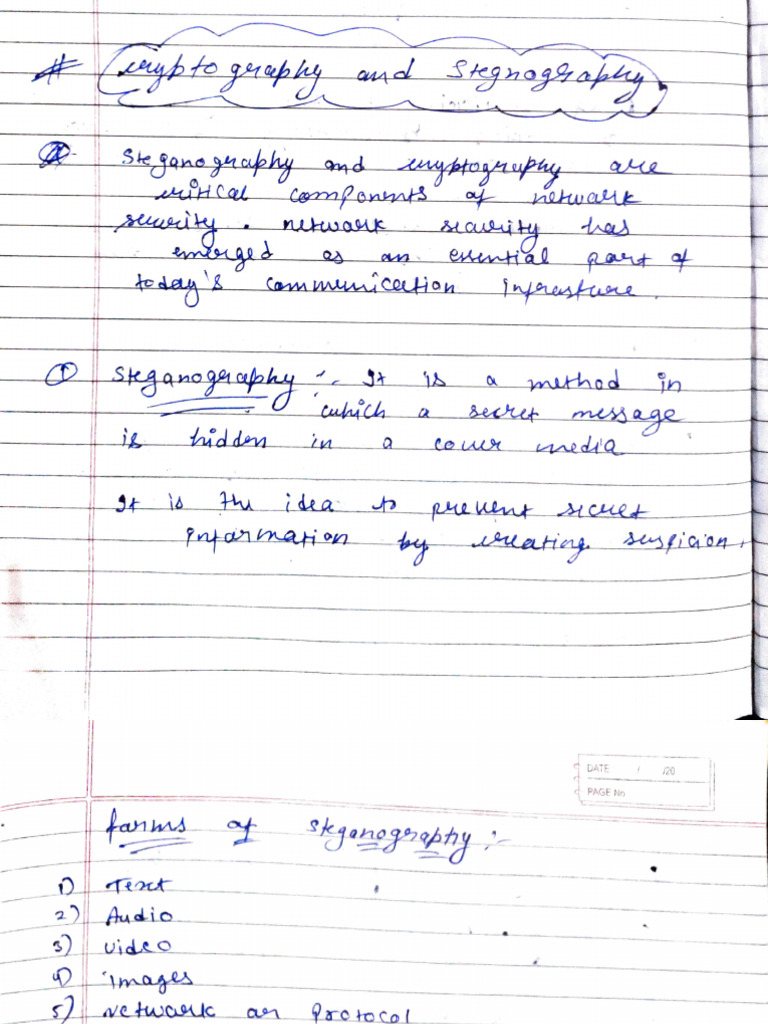 # Cryptography and Stegnography
Steganography and cryptography are
critical components of network
security. network security has
emerged as an essential part of
today's communication infrasture.
① Steganography :- It is a method in
which a secret message
is hidden in a cover media
It is the idea to prevent secret
information by creating suspicion.
DATE / /20
PAGE No
forms of steganography :-
1) Text
2) Audio
3) video
4) images
5) network or Protocol